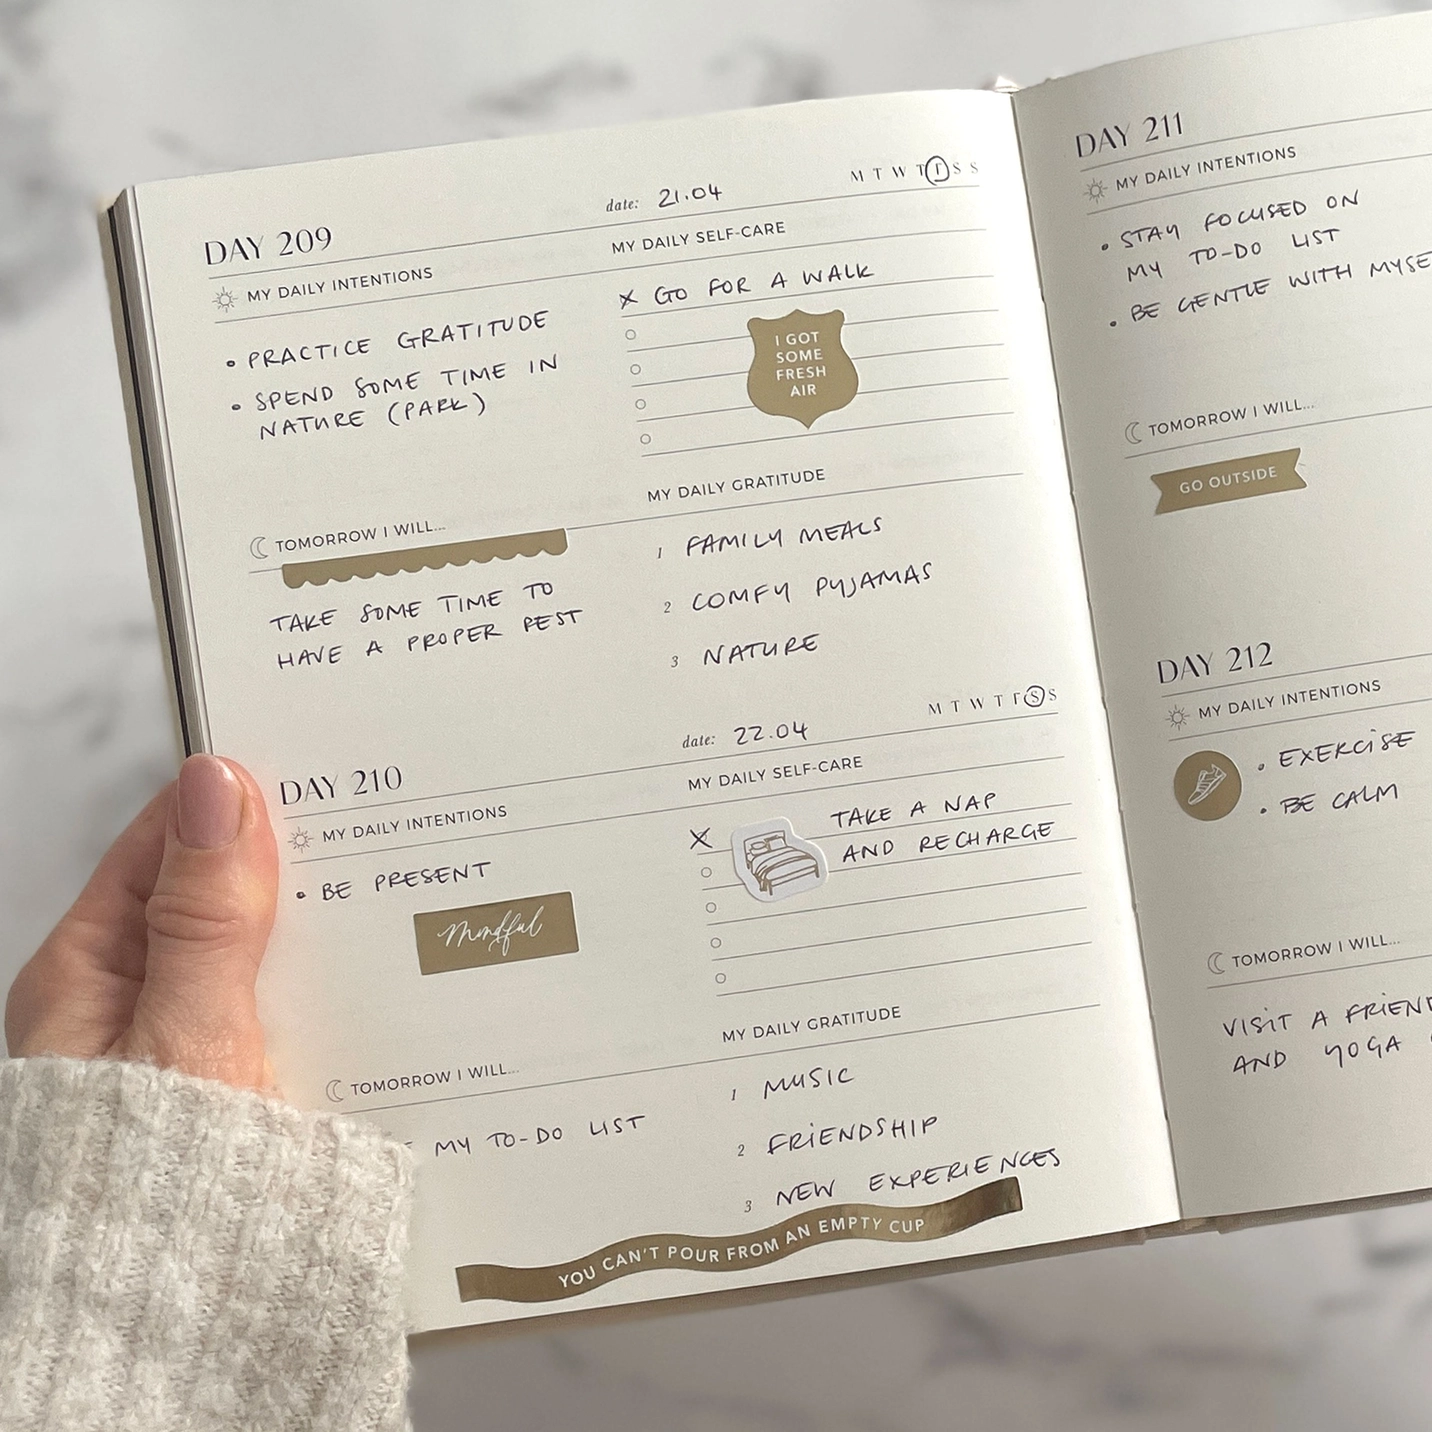 DAY 209
date: 21.04
M T W T F S S
MY DAILY INTENTIONS
• PRACTICE GRATITUDE
• SPEND SOME TIME IN
NATURE (PARK)
MY DAILY SELF-CARE
X GO FOR A WALK
I GOT
SOME
FRESH
AIR
TOMORROW I WILL...
TAKE SOME TIME TO
HAVE A PROPER REST
MY DAILY GRATITUDE
1 FAMILY MEALS
2 COMFY PYJAMAS
3 NATURE
DAY 210
date: 22.04
M T W T F S S
MY DAILY INTENTIONS
• BE PRESENT
Mindful
MY DAILY SELF-CARE
X TAKE A NAP
AND RECHARGE
TOMORROW I WILL...
MY TO-DO LIST
MY DAILY GRATITUDE
1 MUSIC
2 FRIENDSHIP
3 NEW EXPERIENCES
YOU CAN'T POUR FROM AN EMPTY CUP
DAY 211
MY DAILY INTENTIONS
• STAY FOCUSED ON
MY TO-DO LIST
• BE GENTLE WITH
TOMORROW I WILL...
GO OUTSIDE
DAY 212
MY DAILY INTENTIONS
• EXERCISE
• BE CALM
TOMORROW I WILL...
VISIT A
AND YOGA